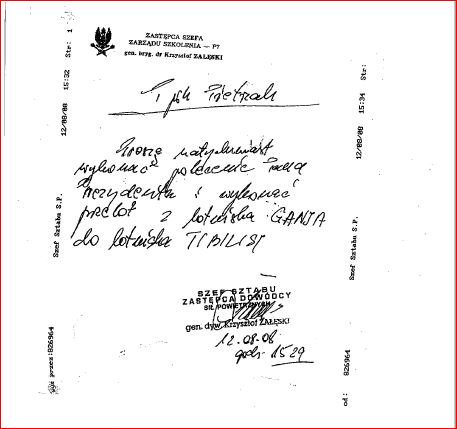 ZASTĘPCA SZEFA
ZARZĄDU SZKOLENIA – P7
gen. bryg. dr Krzysztof ZAŁĘSKI
płk Pietrzak
Proszę natychmiast
wykonać polecenie Pana
Prezydenta i wykonać
przelot z lotniska GANJA
do lotniska TIBILISI
SZEF SZTABU
ZASTĘPCA DOWÓDCY
SIŁ POWIETRZNYCH
gen. dyw. Krzysztof ZAŁĘSKI
12.08.08
godz. 1529
przez:826964 Szef Sztabu S.P. 12/08/08 15:32 Str: 1
od: 826964 Szef Sztabu S.P. 12/08/08 15:34 Str: